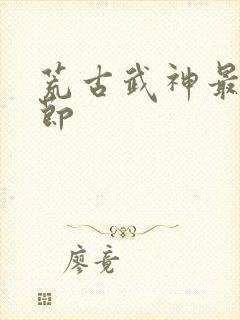 荒古武神最
节
廖竟